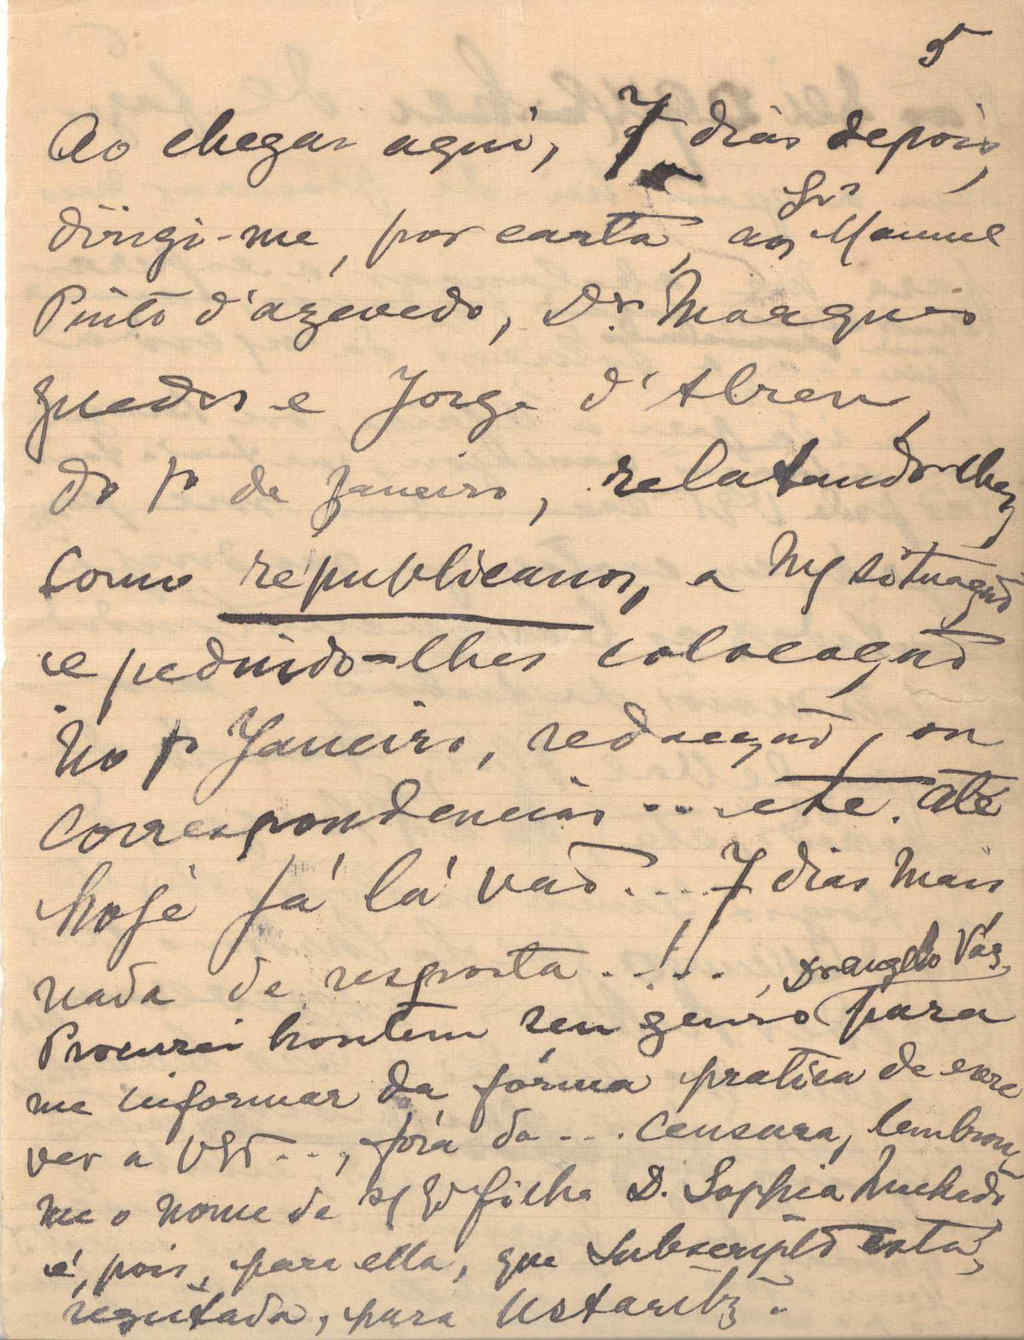 5
Ao chegar aqui, 7 dias depois,
dirigi-me, por carta, aos Srs Manuel
Pinto d'azevedo, Dr. Marques
guedes e Jorge d'Abreu,
do pº de Janeiro, relatando-lhes,
como republicanos, a situação
e pedindo-lhes colocação
no pº Janeiro, redacção, ou
correspondencias ... etc. até
hoje já lá vão .... 7 dias mais
nada de resposta . ! . .
Procurei hontem seu genro Dr angelo Vaz, para
me informar da fórma pratica de escre
ver a ..., fóra da .... censura, lembrou
me o nome de filha D. Sophia Machado
é, pois, para ella, que subscripto esta,
registada, para